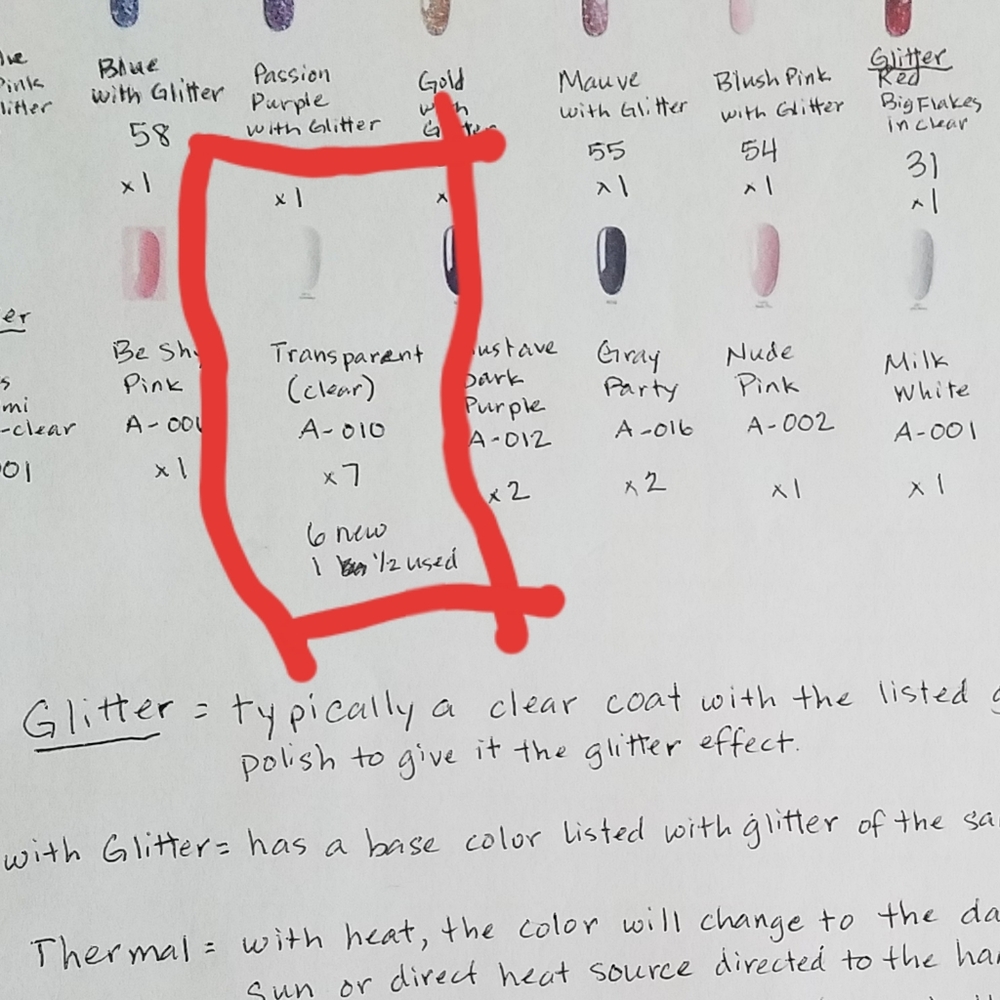 Blue
with Glitter
58
x1
Passion
Purple
with Glitter
x1
Gold
with
x
Mauve
with Glitter
55
x1
Blush Pink
with Glitter
54
x1
Glitter
Red
Big Flakes
in clear
31
x1
Pink
litter
er
s
mi
-clear
01
Be Shy
Pink
A-00
x1
Transparent
(clear)
A-010
x7
6 new
1 1/2 used
ustave
Dark
Purple
A-012
x2
Gray
Party
A-016
x2
Nude
Pink
A-002
x1
Milk
White
A-001
x1
Glitter = typically a clear coat with the listed g
polish to give it the glitter effect.
with Glitter = has a base color listed with glitter of the sa
Thermal = with heat, the color will change to the da
Sun or direct heat source directed to the han